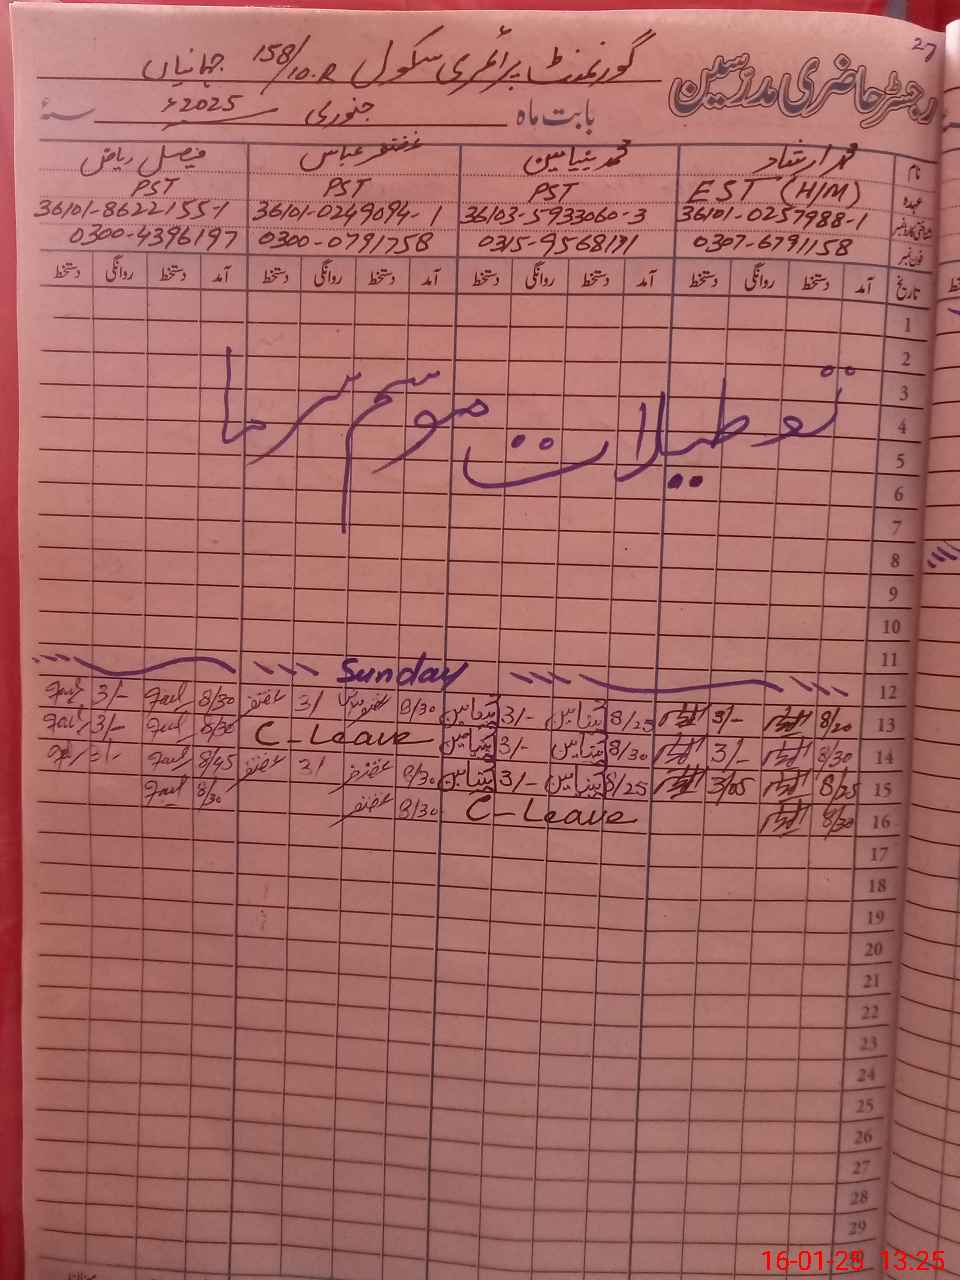 27
رجسٹر حاضری مدرسین
گورنمنٹ پرائمری سکول 158/10.R جہانیاں
بابت ماہ جنوری 2025ء سنہ
نام محمد ارشاد محمد بنیامین غضنفر عباس فیصل ریاض
عہدہ EST (H/M) PST PST PST
شناختی کارڈ نمبر 36101-0257988-1 36103-5933060-3 36101-0249094-1 36101-8622155-1
فون نمبر 0307-6791158 0315-9568171 0300-0791758 0300-4396197
تاریخ آمد دستخط روانگی دستخط آمد دستخط روانگی دستخط آمد دستخط روانگی دستخط آمد دستخط روانگی دستخط
1
2
3
تعطیلات موسم سرما
4
5
6
7
8
9
10
11
12 Sunday
13 8/20 3/- 8/25 بنیامین 3/- بنیامین 8/30 غضنفر 3/ غضنفر 8/30 3/-
14 8/30 3/- 8/30 بنیامین 3/- بنیامین C-Leave 8/30 3/-
15 8/25 3/05 8/25 بنیامین 3/- بنیامین 8/30 غضنفر 3/ غضنفر 8/45 3/-
16 8/30 C-Leave 8/30 غضنفر 8/30
17
18
19
20
21
22
23
24
25
26
27
28
29
16-01-25 13:25